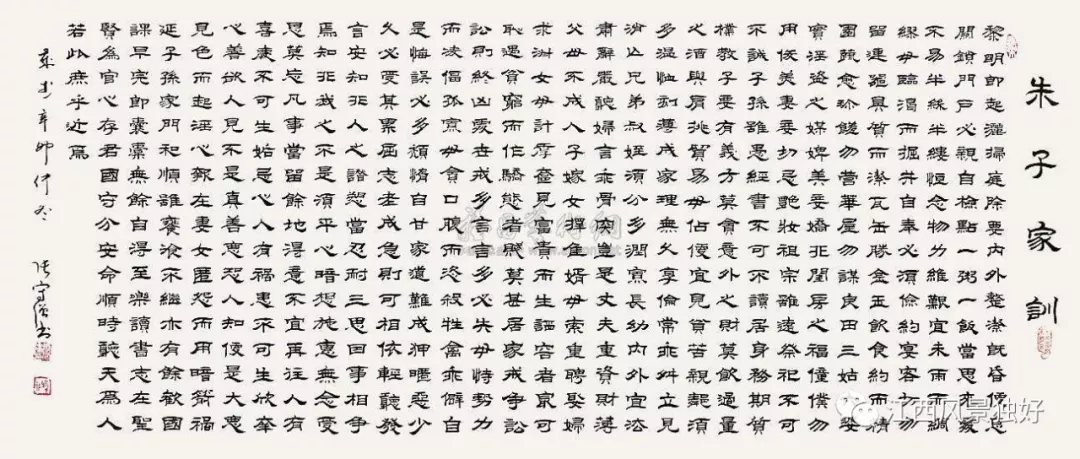 朱子家訓
黎明即起灑掃庭除要內外整潔既昏便息
關鎖門戶必親自檢點一粥一飯當思來處
不易半絲半縷恒念物力維艱宜未雨而綢
繆毋臨渴而掘井自奉必須儉約宴客切勿
留連器具質而潔瓦缶勝金玉飲食約而精
園蔬愈珍饈勿營華屋勿謀良田三姑六婆
實淫盜之媒婢美妾嬌非閨房之福僮僕勿
用俊美妻妾切忌艷妝祖宗雖遠祭祀不可
不誠子孫雖愚經書不可不讀居身務期質
樸教子要有義方莫貪意外之財莫飲過量
之酒與肩挑貿易毋佔便宜見貧苦親鄰須
多溫恤刻薄成家理無久享倫常乖舛立見
消亡兄弟叔姪須分多潤寡長幼內外宜法
肅辭嚴聽婦言乖骨肉豈是丈夫重資財薄
父母不成人子嫁女擇佳婿毋索重聘娶婦
求淑女毋計厚奩見富貴而生諂容者最可
恥遇貧窮而作驕態者賤莫甚居家戒爭訟
訟則終凶處世戒多言言多必失毋恃勢力
而凌倡孤寡毋貪口腹而恣殺牲禽乖僻自
是悔誤必多頹惰自甘家道難成狎暱惡少
久必受其累屈志老成急則可相依輕聽發
言安知非人之譖愬當忍耐三思因事相爭
焉知非我之不是須平心暗想施惠無念受
恩莫忘凡事當留餘地得意不宜再往人有
喜慶不可生妒忌心人有禍患不可生欣幸
心善欲人見不是真善惡恐人知便是大惡
見色而起淫心報在妻女匿怨而用暗箭禍
延子孫家門和順雖饔飧不繼亦有餘歡國
課早完即囊橐無餘自得至樂讀書志在聖
賢為官心存君國守分安命順時聽天為人
若此庶乎近焉
辛卯仲冬
江西风景独好